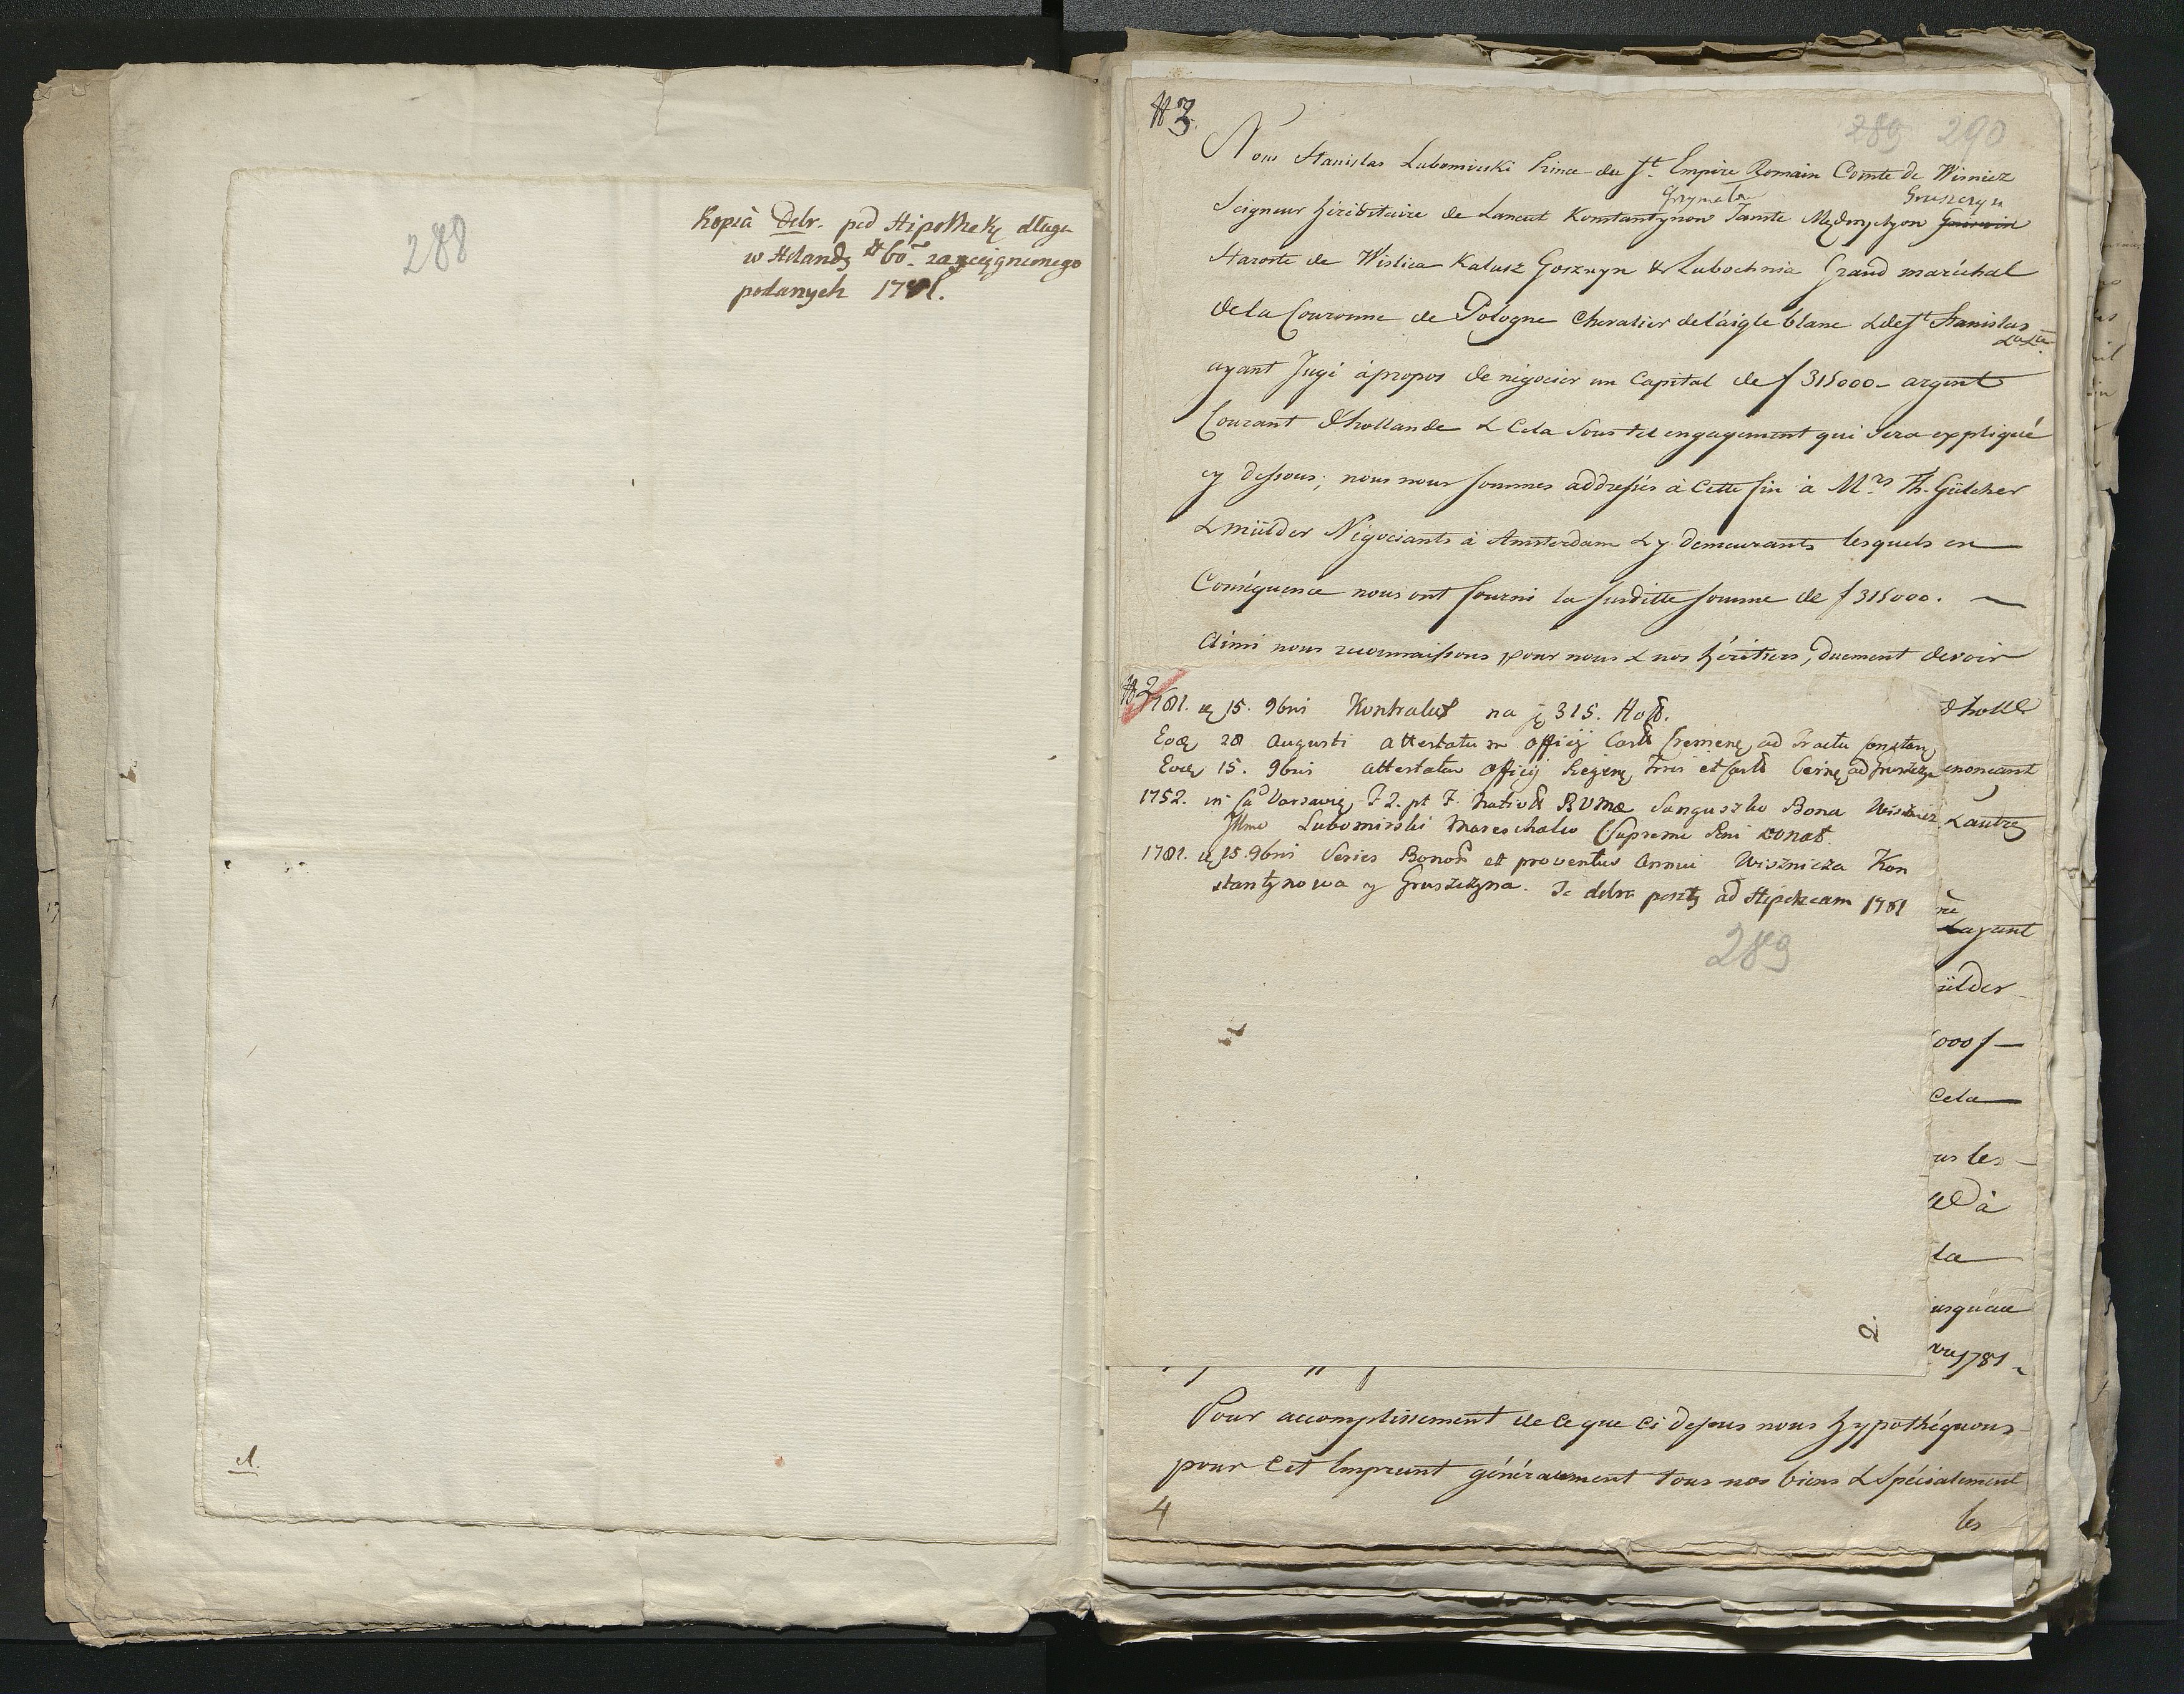 288
Kopia Dobr. pod Hipothekę długu
w Holandy zaciągnionego
podanych 1781.
cl.
# 3.
289 290
Nous Stanislas Lubomirski Prince du St. Empire Romain Comte de Wisnicz
Grymała Gruszczyn
Seigneur héréditaire de Lancut Konstantynow Tarnte
Staroste de Wislica Kalusz Goszczyn & Lubochnia Grand maréchal
de la Couronne de Pologne Chevalier de l'aigle blanc & de St Stanislas
&a &a
ayant Jugé à propos de négocier un Capital de f 315000 - argent
Courant d'hollande & Cela sous tel engagement qui sera expliqué
cy dessous; nous nous sommes addressés à Cette fin à Mrs Th. Gülcher
& Mülder Négociants à Amsterdam & y demeurants lesquels en
Conséquence nous ont fourni la susditte somme de f 315000. —
Ainsi nous reconnaissons pour nous & nos héritiers, duement devoir
# 2
1781. 15. 9bris Kontrakt na 315. Holl.
d'holl
Eod 28 Augusti attestatum officij Castr Cremene ad Tractu Constan
Eod 15. 9bris attestatu officij Terris et Castr ad Gruszczyn
enoncant
1752. in Varsavie Sanguszko Bona Wisznicz
& autre
Illmo Lubomirski Mareschalco Supremo Rni donat.
1781. 15. 9bris Series Bonor et proventus Annui Wisznicza Kon
stantynowa y Gruszczyna. Te dobra ad Hipotecam 1781
& ayant
289
ülder
000 f —
Cela —
us les —
à
la —
usqu'au
1781
2.
Pour accomplissement de ce que ci dessus nous hypothéquons
pour Cet Emprunt généralement tous nos biens & spécialement
4
les